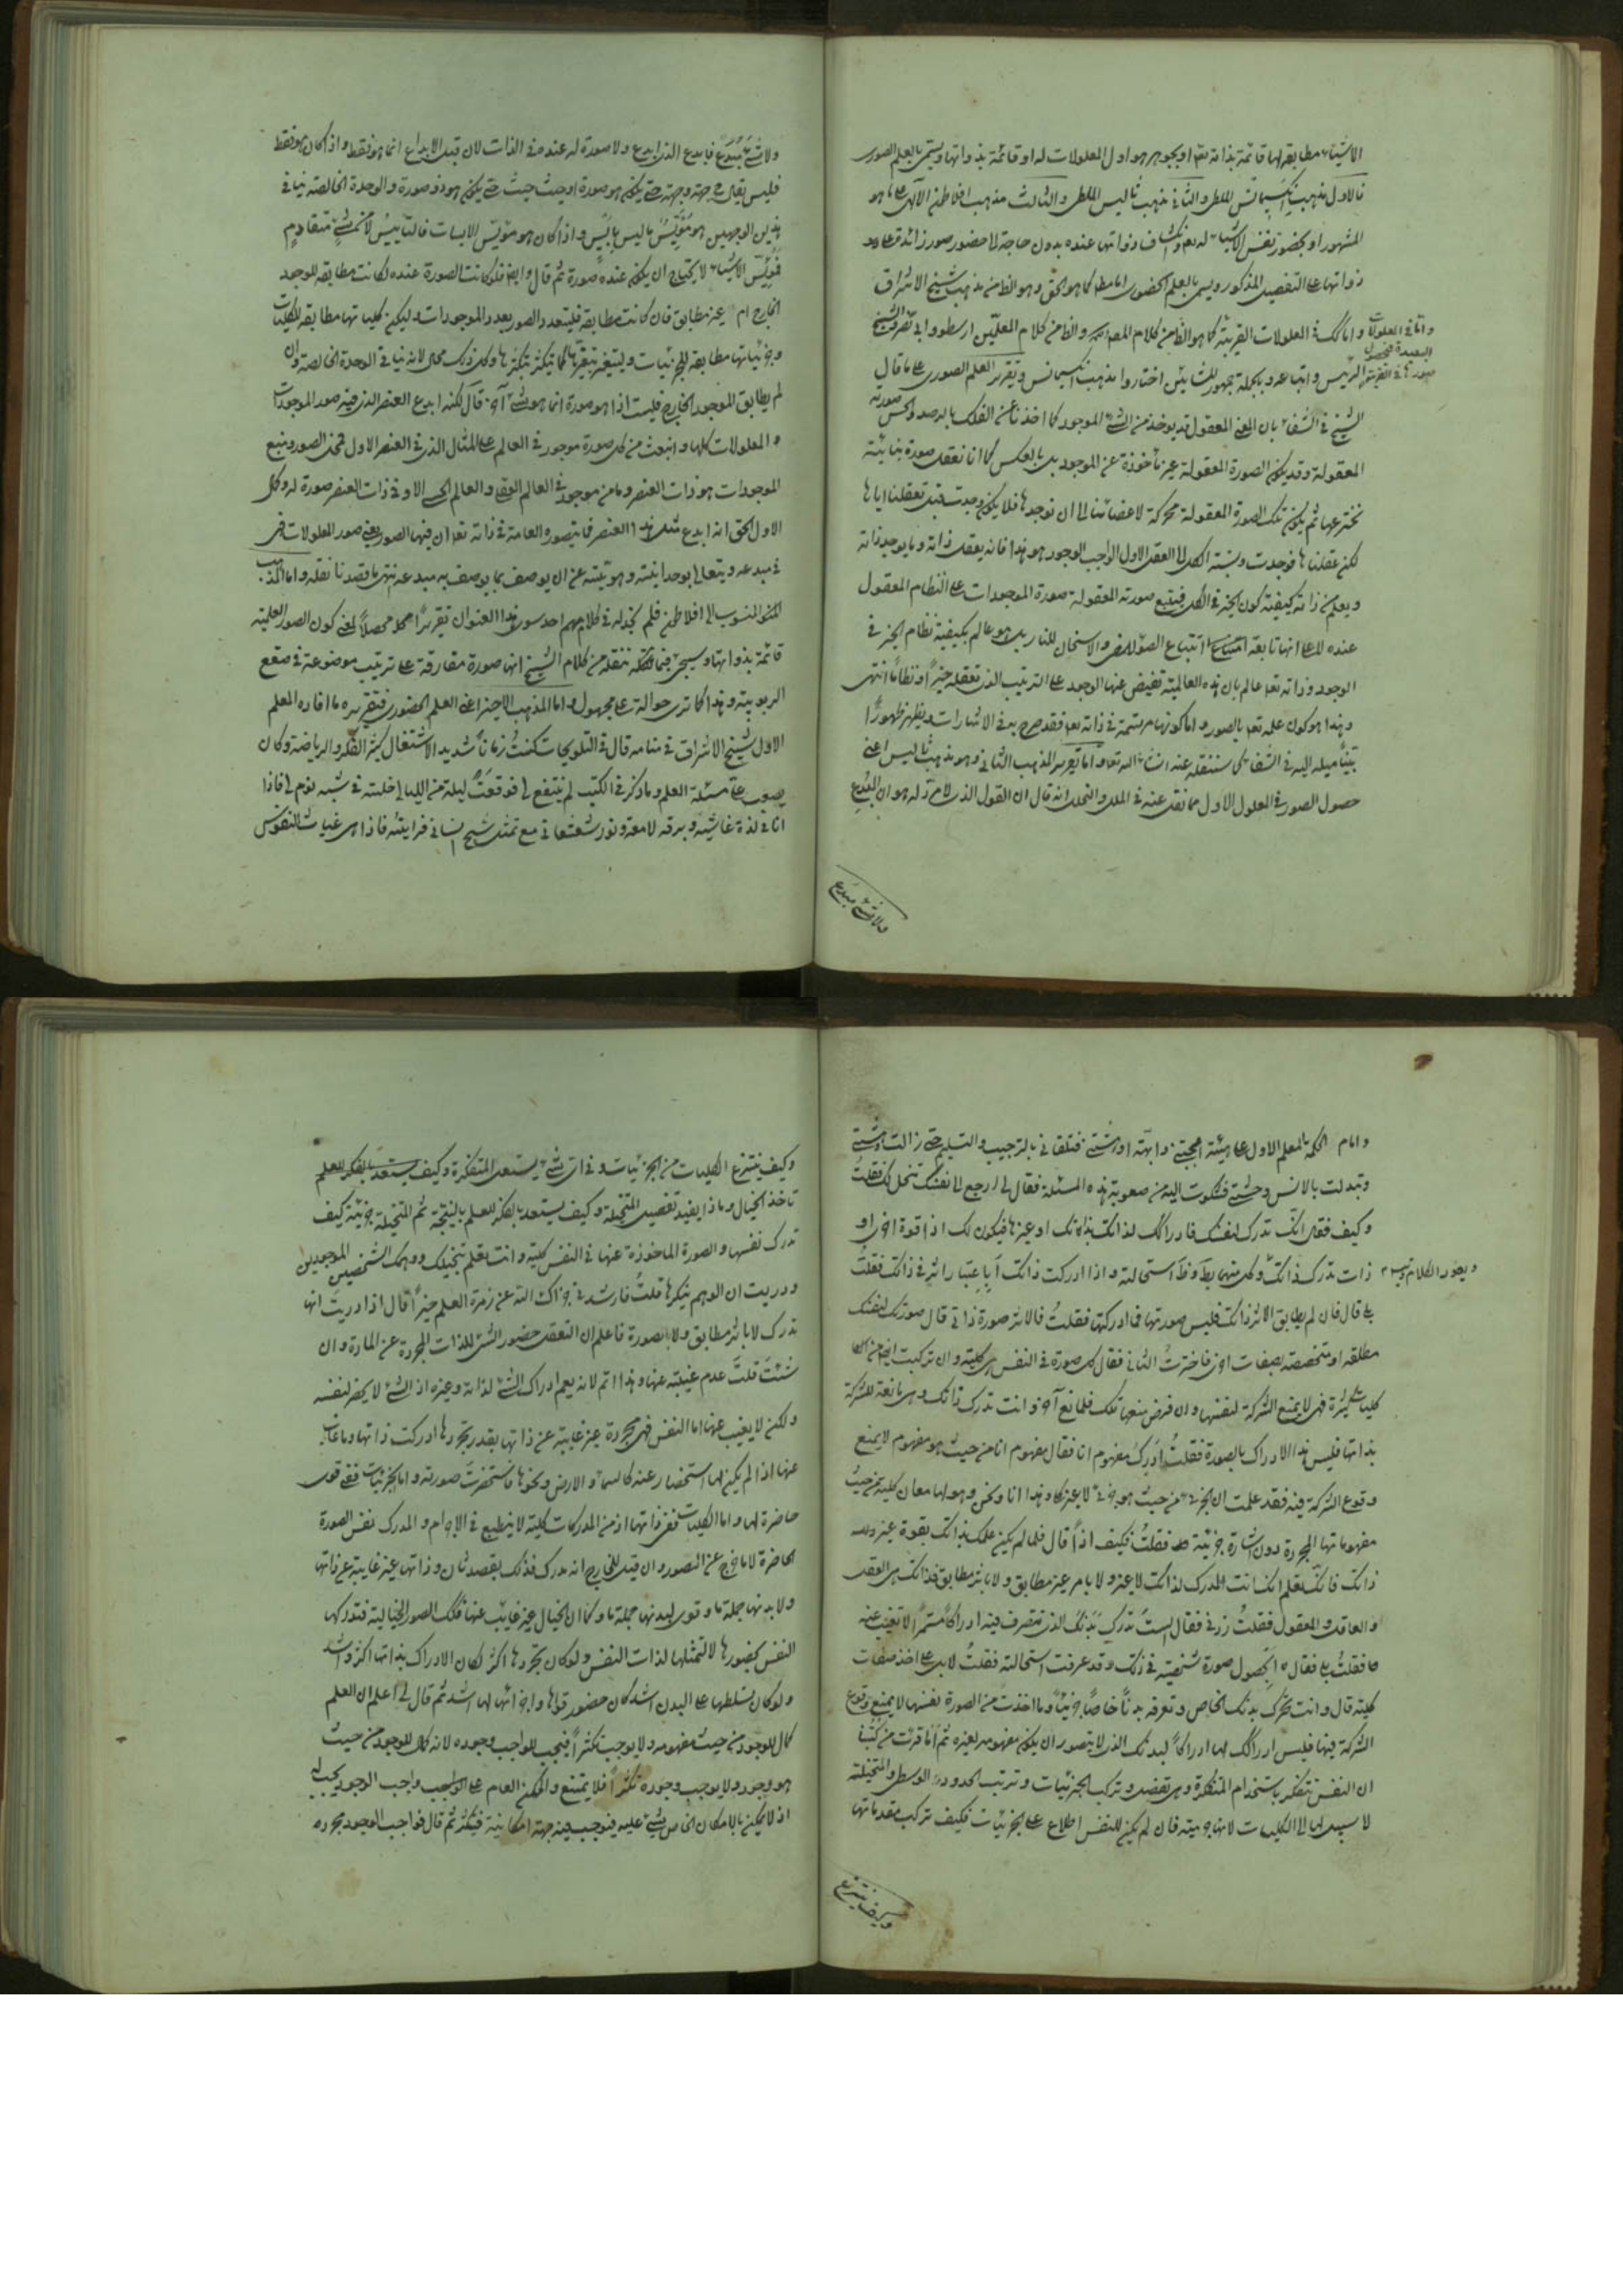 الاشياء مطابقة لها قائمة بذاته تعالى او بجوهر هو اول المعلولات له او قائمة بذواتها ويسمى بالعلم الصورى
فالاول مذهب انكسيمانس الملطى والثانى مذهب ثاليس الملطى والثالث مذهب افلاطن الالهى على ما هو
المشهور او بحضور نفس الاشياء له تعالى وانكشاف ذواتها عنده بدون حاجة الى حضور صور زائدة على
ذواتها على التفصيل المذكور ويسمى بالعلم الحضورى اما مطلقا كما هو الحق وهو الظ من مذهب شيخ الاشراق
واما فى المعلولات القريبة كما هو الظ من كلام والظ من كلام المعلمين ارسطو وابى نصر والشيخ
واما فى المعلولات
البعيدة فبحصول
صورها فى القريبة
الرئيس واتباعه وبالجملة جمهور المشائين اختاروا مذهب انكسيمانس وتقرير العلم الصورى على ما قال
الشيخ فى الشفاء بان المعنى المعقول قد يوخذ من الشئ الموجود كما اخذنا عن الفلك بالرصد والحس صورته
المعقولة وقد يكون الصورة المعقولة غير مأخوذة عن الموجود بل بالعكس كما انا نعقل صورة بنائية
نخترعها ثم يكون تلك الصورة المعقولة محركة لاعضائنا الى ان نوجدها فلا يكون وجدت فعقلناها
لكن عقلناها فوجدت ونسبة الكل الى العقل الاول الواجب الوجود هو هذا فانه يعقل ذاته وما يوجبه ذاته
ويعلم من ذاته كيفية كون الخير فى الكل فيتبع صورته المعقولة صورة الموجودات على النظام المعقول
عنده لا على انها تابعة اتباع الضوء للمضى والاسخان للنار بل هو عالم بكيفية نظام الخير فى
الوجود وذاته تعلم عالم بان هذه العالمية تفيض عنها الوجود على الترتيب الذى تعقله خيرا ونظاما انتهى
وهذا هو كون علمه تعالى بالصور واما كونها مرتسمة فى ذاته تعالى فقد صرح به فى الاشارات ويظهر ظهورا
بينا ميله اليه فى الشفاء كما سننقله عنه انشاء الله تعالى واما تقرير المذهب الثانى وهو مذهب ثاليس اعنى
حصول الصور فى المعلول الاول مما نقل عنه فى الملل والنحل انه قال ان القول الذى لا مرد له هو ان المبدع
ولا شئ مبدع
ولا شئ مبدع فابدع الذى ابدع ولا صورة له عنده فى الذات لان قبل الابداع انما هو فقط واذا كان هو فقط
فليس يقال ح جهة وجهة حتى يكون هو وصورة او حيث وحيث حتى يكون هو ذو صورة والوحدة الخالصة ينافى
هذين الوجهين هو مؤيس ما ليس بايس واذا كان هو مؤيس الايسات فالتأييس لا من شئ متقادم
فمؤيس الاشياء لا يحتاج ان يكون عنده صورة ثم قال وايضا فلو كانت الصورة عنده لكانت مطابقة للموجد
الخارج ام غير مطابق فان كانت مطابقة فليتعدد الصور بعدد الموجودات وليكن كلياتها مطابقة للكليات
وجزئياتها مطابقة للجزئيات وليتغير بتغيرها كما تتكثر بتكثرها وكل ذلك محال لانه ينافى الوحدة الخالصة وان
لم يطابق الموجود الخارج فليست اذا هو صورة انما هو شئ آخر قال لكنه ابدع العنصر الذى فيه صور الموجودات
والمعلولات كلها وانبعث من كل صورة موجود فى العالم على المثال الذى فى العنصر الاول فمحل الصور ومنبع
الموجودات هو ذات العنصر وما من موجود فى العالم العقلى والعالم الحسى الا وفى ذات العنصر صورة له وكمال
الاول الحق انه ابدع مثل هذا العنصر فما يتصوره العامة فى ذاته تعالى ان فيها الصور يعنى صور المعلومات فهى
فى مبدعه ويتعالى بوحدانيته وهويته عن ان يوصف بما يوصف به مبدعه انتهى ما قصدنا نقله واما المذهب
المنسوب الى افلاطن فلم نجد له فى كلامهم احد سوى هذا العنوان تقريرا محصلا اعنى كون الصور العلمية
قائمة بذواتها وسيجئ فيما ننقله من كلام الشيخ انها صورة مفارقة على ترتيب موضوعة فى صقع
الربوبية وهذا كما ترى حوالة على مجهول واما المذهب الاخير اعنى العلم الحضورى فتقريره ما افاده المعلم
الاول لشيخ الاشراق فى منامه قال فى التلويحات كنت زمانا شديد الاشتغال كثير الفكر والرياضة وكان
يصعب على مسئلة العلم وما ذكر فى الكتب لم ينتفع لى فوقعت ليلة من الليالى خلسة فى شبه نوم لى فاذا
انا فى لذة غاشية وبرقة لامعة ونور شعشعانى مع تمثل شبح انسانى فرايته فاذا هى غياث النفوس
وامام الحكمة المعلم الاول على هيئة اعجبتنى وابهة ادهشتنى فتلقانى بالترحيب والتسليم حتى زالت دهشتى
وتبدلت بالانس وحشتى فشكوت اليه من صعوبة هذه المسئلة فقال لى ارجع الى نفسك تنحل لك فقلت
وكيف فقال انك تدرك لنفسك فادراكك لذاتك بذاتك او غيرها فيكون لك اذا قوة اخرى او
ذات تدرك ذاتك وظ استحالته واذا ادركت ذاتك أباعتبار اثر فى ذاتك فقلت
ويعود الكلام
بلى قال فان لم يطابق الاثر ذاتك فليس صورتها فما ادركتها فقلت فالاثر صورة ذاتى قال صورتك لنفسك
مطلقة او متخصصة بصفات اخرى فاخترت الثانى فقال كل صورة فى النفس هى كلية وان تركبت ايضا من
كليات كثيرة فهى لا يمنع الشركة لنفسها وان فرض منعها تلك فلمانع آخر وانت تدرك ذاتك وهى مانعة للشركة
بذاتها فليس هذا الادراك بالصورة فقلت ادرك مفهوم انا فقال مفهوم انا من حيث هو مفهوم لا يمنع
وقوع الشركة فيه فقد علمت ان الجزئى من حيث هو جزئى لا غير كلى وهذا وانا ونحن وهو لها معان كلية من حيث
مفهوماتها المجردة دون اشارة جزئية فقلت فكيف اذا قال فلما لم يكن علمك بذاتك بقوة غير
ذاتك فانك تعلم انك انت المدرك لذاتك لا غير ولا باثر غير مطابق ولا باثر مطابق فذاتك هى العقل
والعاقل والمعقول فقلت زدنى فقال الست تدرك بدنك الذى تتصرف فيه ادراكا مستمرا لا تغيب عنه
فقلت بلى فقال أبحصول صورة شخصية فى ذاتك وقد عرفت استحالته فقلت لا بل على اخذ صفات
كلية قال وانت تحرك بدنك الخاص وتعرفه بدنا خاصا جزئيا وما اخذت من الصورة نفسها لا يمنع وقوع
الشركة فيها فليس ادراكك لها ادراكا لبدنك الذى لا يتصور ان يكون مفهومه لغيره ثم اما قرأت من كتبنا
ان النفس تتفكر باستخدام المتفكرة وهى تفصل وتركب الجزئيات وترتب الحدود الوسطى والمتخيلة
لا سبيل لها الى الكليات لانها جرمية فان لم يكن للنفس اطلاع على الجزئيات فكيف تركب مقدماتها
وكيف ينتزع
وكيف ينتزع الكليات من الجزئيات وفى اى شئ يستعمل المتفكرة وكيف يستعد بالفكر للعلم
تاخذ الخيال وماذا يفيد تفصيل المتخيلة وكيف يستعد بالفكر للعلم بالنتيجة ثم المتخيلة جرمية كيف
تدرك نفسها والصورة الماخوذة عنها فى النفس كلية وانت تعلم بتخيلك ووهمك الشخصيين الموجودين
ودريت ان الوهم ينكرها قلت فارشدنى جزاك الله عن زمرة العلم خيرا قال اذا دريت انها
تدرك لا باثر مطابق ولا بصورة فاعلم ان التعقل حضور الشئ للذات المجردة عن المادة وان
شئت قلت عدم غيبته عنها وهذا اتم لانه يعم ادراك الشئ لذاته وغيره اذ الشئ لا يحضر لنفسه
ولكن لا يغيب عنها اما النفس فهى مجردة غير غايبة عن ذاتها بقدر تجردها ادركت ذاتها وما غاب
عنها اذا لم يكن لها استحضار عنه كالسماء والارض ونحوها فاستحضرت صورته اما الجزئيات ففى قوى
حاضرة لها واما الكليات ففى ذاتها اذ من المدركات كلية لا ينطبع فى الاجرام والمدرك نفس الصورة
الحاضرة لا ما خرج عن التصور وان قيل للخارج انه مدرك فذلك بقصد ثان وذاتها غير غايبة عن ذاتها
ولا بدنها جملة ما وقوى لبدنها جملة ما وكما ان الخيال غير غايب عنها فكذلك الصور الخيالية فتدركها
النفس بحضورها لا لتمثلها لذات النفس ولو كان تجردها اكثر لكان الادراك بذاتها اكثر واشد
ولو كان تسلطها على البدن اشد كان حضور قواها واجزائها لها اشد ثم قال لى اعلم ان العلم
كمال للوجود من حيث مفهومه ولا يوجب تكثرا فيجب للواجب وجوده لانه كمال للوجود من حيث
هو وجود ولا يوجب وجوده تكثرا فلا يمتنع والممكن العام على الواجب واجب الوجود يجب له
اذ لا يمكن بالامكان الخاص شئ عليه فيوجب فيه جهة امكانية فيتكثر ثم قال فواجب الوجود مجرد